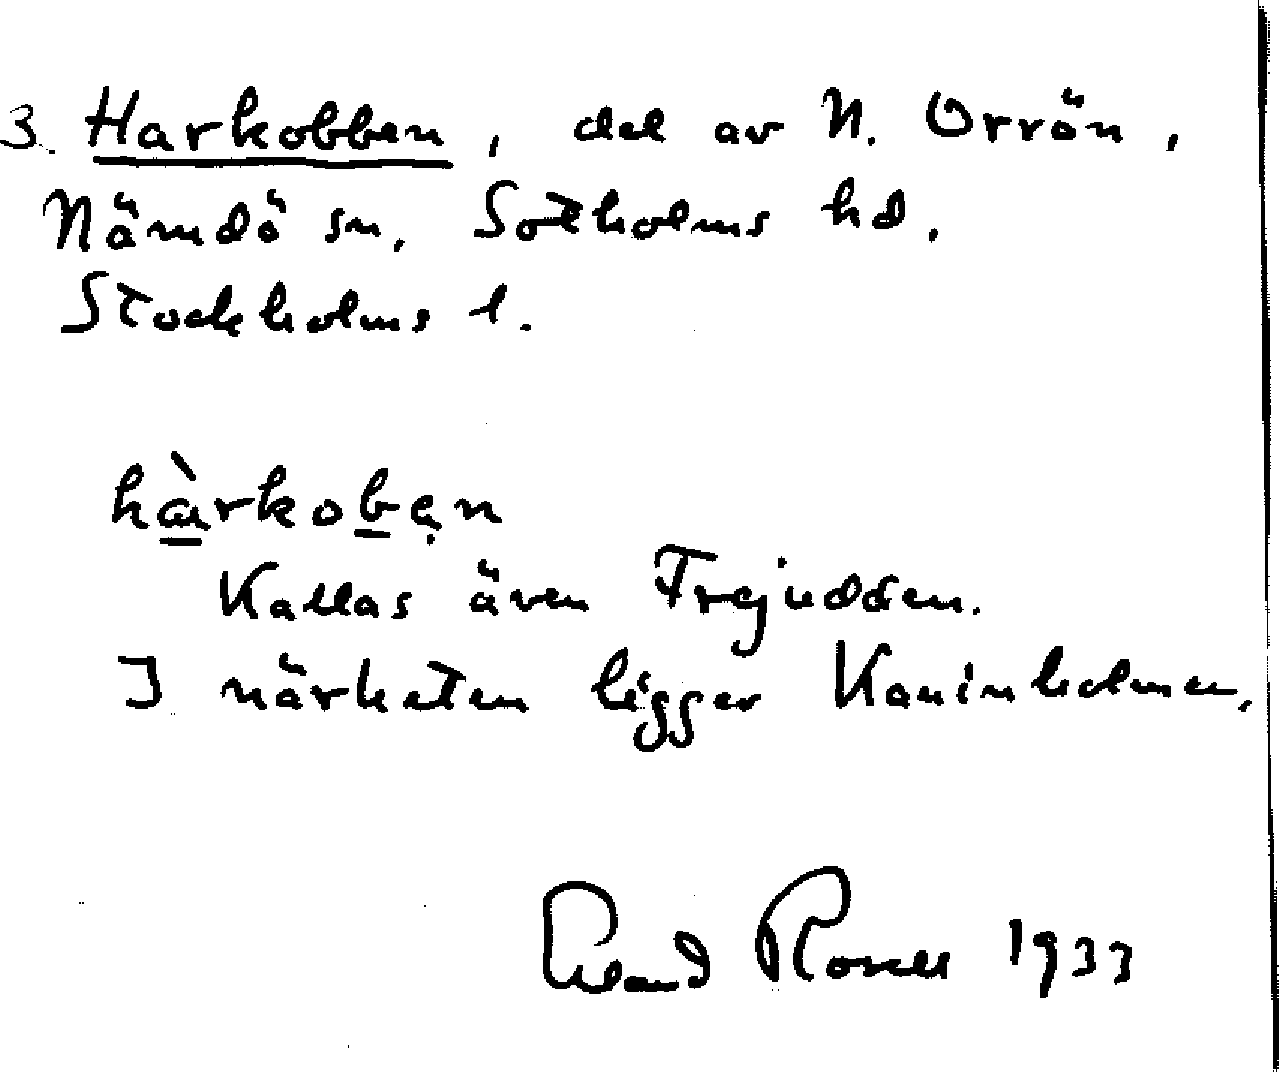 3. Harkobben, del av N. Orrön,
Nämdö sn, Sotholms hd,
Stockholms l.
hàrkoben
Kallas även Frejudden.
I närheten ligger Kaninholmen.
Erland Rosell 1933